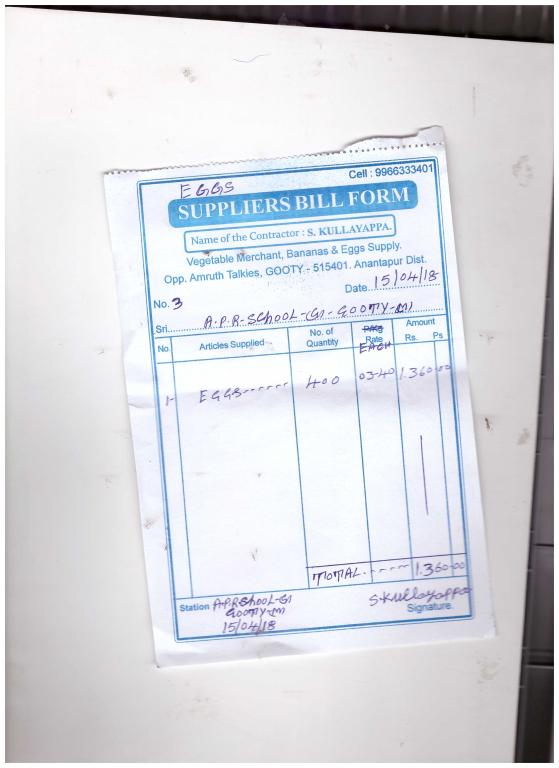 Cell : 9966333401
EGGS
SUPPLIERS BILL FORM
Name of the Contractor : S. KULLAYAPPA.
Vegetable Merchant, Bananas & Eggs Supply.
Opp. Amruth Talkies, GOOTY - 515401. Anantapur Dist.
No. 3 Date 15/04/18
Sri. A.P.R-SCHOOL-(G)-GOOTY-(M)
No Articles Supplied No. of Quantity P/Kg Rate EACH Amount Rs. Ps
1- EGGS------ 400 03-40 1.360-00
TOTAL.----- 1.360-00
Station A.P.R School-G) S.Kullayappa
GOOTY-(M) Signature.
15/04/18